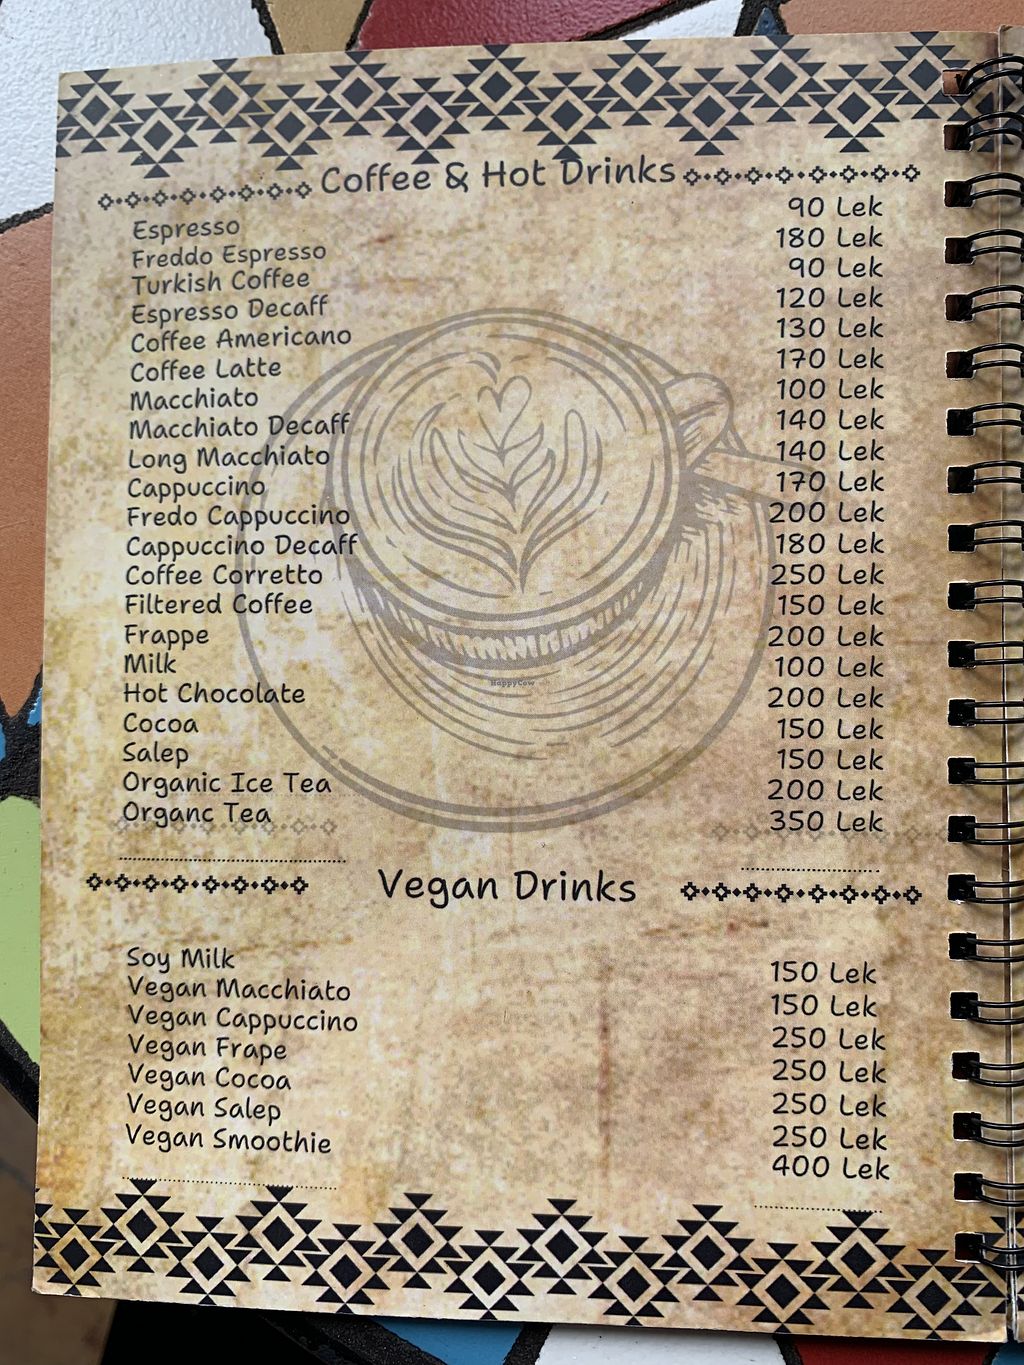 Coffee & Hot Drinks
Espresso 90 Lek
Freddo Espresso 180 Lek
Turkish Coffee 90 Lek
Espresso Decaff 120 Lek
Coffee Americano 130 Lek
Coffee Latte 170 Lek
Macchiato 100 Lek
Macchiato Decaff 140 Lek
Long Macchiato 140 Lek
Cappuccino 170 Lek
Fredo Cappuccino 200 Lek
Cappuccino Decaff 180 Lek
Coffee Corretto 250 Lek
Filtered Coffee 150 Lek
Frappe 200 Lek
Milk 100 Lek
Hot Chocolate 200 Lek
Cocoa 150 Lek
Salep 150 Lek
Organic Ice Tea 200 Lek
Organc Tea 350 Lek
Vegan Drinks
Soy Milk 150 Lek
Vegan Macchiato 150 Lek
Vegan Cappuccino 250 Lek
Vegan Frape 250 Lek
Vegan Cocoa 250 Lek
Vegan Salep 250 Lek
Vegan Smoothie 400 Lek
HappyCow